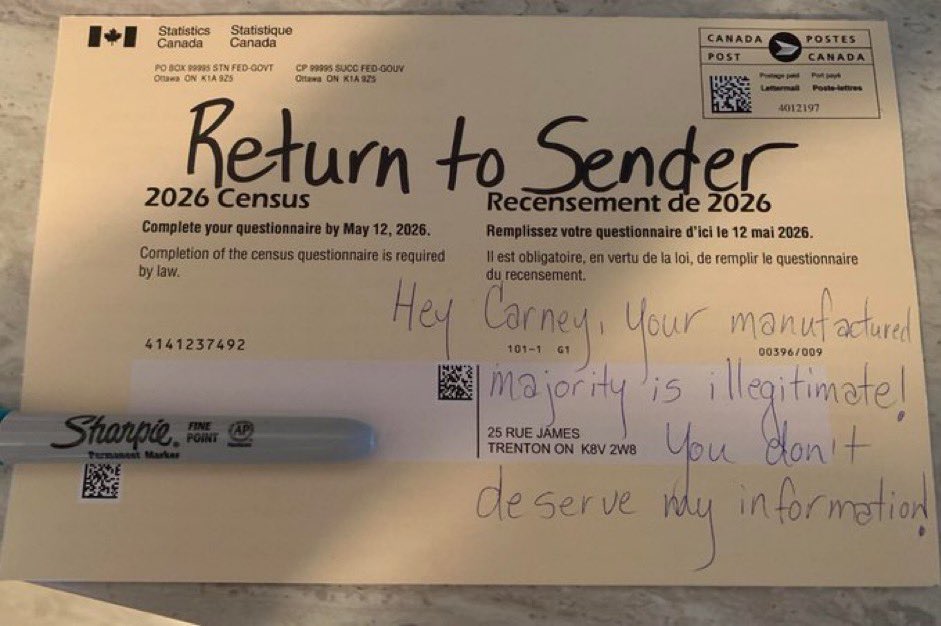 Statistics Canada
Statistique Canada
PO BOX 99995 STN FED-GOVT
Ottawa ON K1A 9Z5
CP 99995 SUCC FED-GOUV
Ottawa ON K1A 9Z5
CANADA POSTES
POST CANADA
Postage paid Port payé
Lettermail Poste-lettres
4012197
Return to Sender
2026 Census
Complete your questionnaire by May 12, 2026.
Completion of the census questionnaire is required
by law.
Recensement de 2026
Remplissez votre questionnaire d'ici le 12 mai 2026.
Il est obligatoire, en vertu de la loi, de remplir le questionnaire
du recensement.
Hey Carney, your manufactured
majority is illegitimate!
You don't
deserve my information!
4141237492
101-1 G1
00396/009
25 RUE JAMES
TRENTON ON K8V 2W8
Sharpie®
FINE
POINT
AP
Permanent Marker